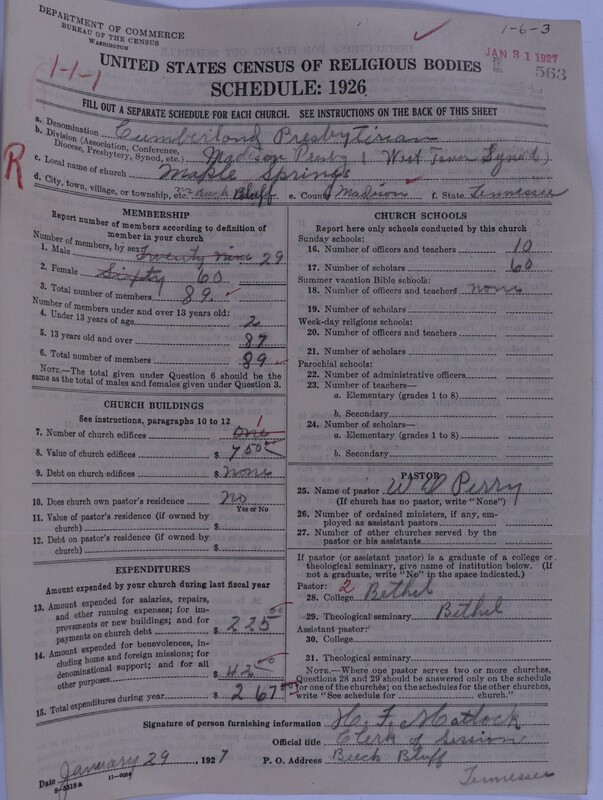 DEPARTMENT OF COMMERCE
BUREAU OF THE CENSUS
WASHINGTON
1-6-3
JAN 31 1927
563
1-1-1
UNITED STATES CENSUS OF RELIGIOUS BODIES
SCHEDULE: 1926
FILL OUT A SEPARATE SCHEDULE FOR EACH CHURCH. SEE INSTRUCTIONS ON THE BACK OF THIS SHEET
R
a. Denomination Cumberland Presbytirian
b. Division (Association, Conference, Diocese, Presbytery, Synod, etc.) Madison Presby ( West Tenn Synod)
c. Local name of church Maple Springs
d. City, town, village, or township, etc. Beech Bluff e. County Madison f. State Tennessee
MEMBERSHIP
Report number of members according to definition of
member in your church
Number of members, by sex:
1. Male Twenty nine 29
2. Female Sixty 60
3. Total number of members 89
Number of members under and over 13 years old:
4. Under 13 years of age 2
5. 13 years old and over 87
6. Total number of members 89
NOTE.—The total given under Question 6 should be the
same as the total of males and females given under Question 3.
CHURCH BUILDINGS
See instructions, paragraphs 10 to 12
7. Number of church edifices one 1
8. Value of church edifices $ 750 00
9. Debt on church edifices $ none
10. Does church own pastor's residence no
Yes or No
11. Value of pastor's residence (if owned by
church) $
12. Debt on pastor's residence (if owned by
church) $
EXPENDITURES
Amount expended by your church during last fiscal year
13. Amount expended for salaries, repairs,
and other running expenses; for im-
provements or new buildings; and for
payments on church debt $ 225 00
14. Amount expended for benevolences, in-
cluding home and foreign missions; for
denominational support; and for all
other purposes $ 42 50
15. Total expenditures during year $ 267 50
CHURCH SCHOOLS
Report here only schools conducted by this church
Sunday schools:
16. Number of officers and teachers 10
17. Number of scholars 60
Summer vacation Bible schools:
18. Number of officers and teachers none
19. Number of scholars
Week-day religious schools:
20. Number of officers and teachers
21. Number of scholars
Parochial schools:
22. Number of administrative officers
23. Number of teachers—
a. Elementary (grades 1 to 8)
b. Secondary
24. Number of scholars—
a. Elementary (grades 1 to 8)
b. Secondary
PASTOR
25. Name of pastor Perry
(If church has no pastor, write "None")
26. Number of ordained ministers, if any, em-
ployed as assistant pastors
27. Number of other churches served by the
pastor or his assistants
If pastor (or assistant pastor) is a graduate of a college or
theological seminary, give name of institution below. (If
not a graduate, write "No" in the space indicated.)
Pastor: 2
28. College Bethel
29. Theological seminary Bethel
Assistant pastor:
30. College
31. Theological seminary
NOTE.—Where one pastor serves two or more churches,
Questions 28 and 29 should be answered only on the schedule
for one of the churches; on the schedules for the other churches,
write "See schedule for church."
Signature of person furnishing information H. F. Matlock
Official title Clerk of Session
Date January 29, 1927 P. O. Address Beech Bluff
Tennessee